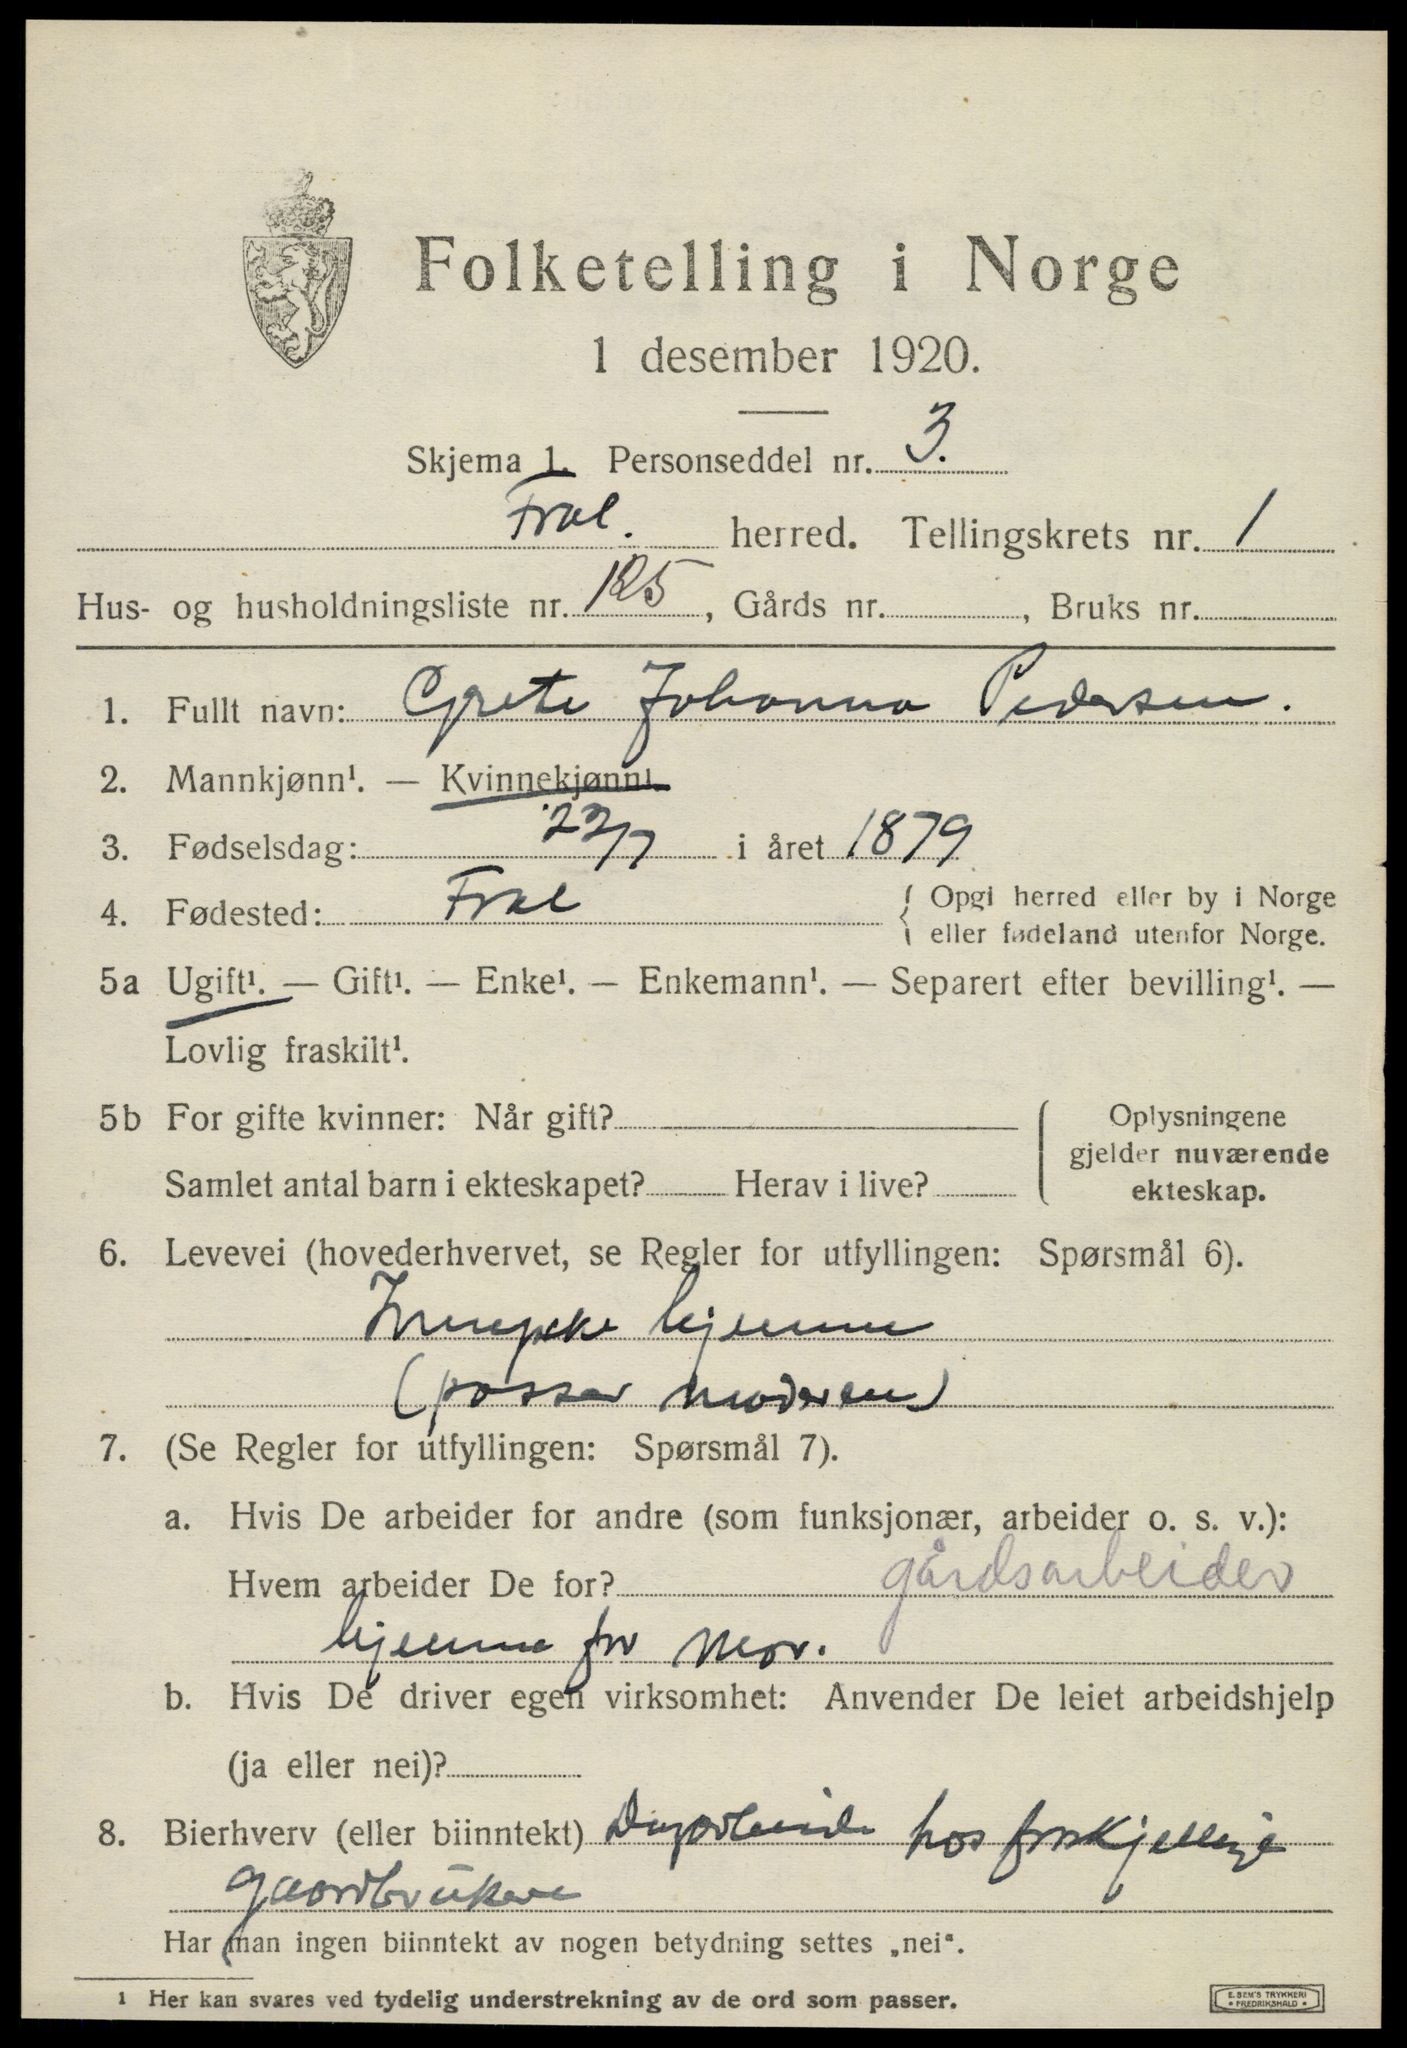 Folketelling i Norge
1 desember 1920.
Skjema 1. Personseddel nr. 3.
herred. Tellingskrets nr. 1
Hus- og husholdningsliste nr. 125, Gårds nr. , Bruks nr.
1. Fullt navn: Grete Johanna Pedersen.
2. Mannkjønn¹. — Kvinnekjønn¹.
3. Fødselsdag: 22/7 i året 1879
4. Fødested: { Opgi herred eller by i Norge
eller fødeland utenfor Norge.
5a Ugift¹. — Gift¹. — Enke¹. — Enkemann¹. — Separert efter bevilling¹. —
Lovlig fraskilt¹.
5b For gifte kvinner: Når gift?
Samlet antal barn i ekteskapet? Herav i live?
Oplysningene
gjelder nuværende
ekteskap.
6. Levevei (hovederhvervet, se Regler for utfyllingen: Spørsmål 6).
hjemme
(passer moderen)
7. (Se Regler for utfyllingen: Spørsmål 7).
a. Hvis De arbeider for andre (som funksjonær, arbeider o. s. v.):
Hvem arbeider De for? gårdsarbeider
hjemme for Mor.
b. Hvis De driver egen virksomhet: Anvender De leiet arbeidshjelp
(ja eller nei)?
8. Bierhverv (eller biinntekt) Dagarbeide hos forskjellige
gaardbrukere
Har man ingen biinntekt av nogen betydning settes „nei“.
1 Her kan svares ved tydelig understrekning av de ord som passer.
E. SEM'S TRYKKERI
* FREDRIKSHALD *